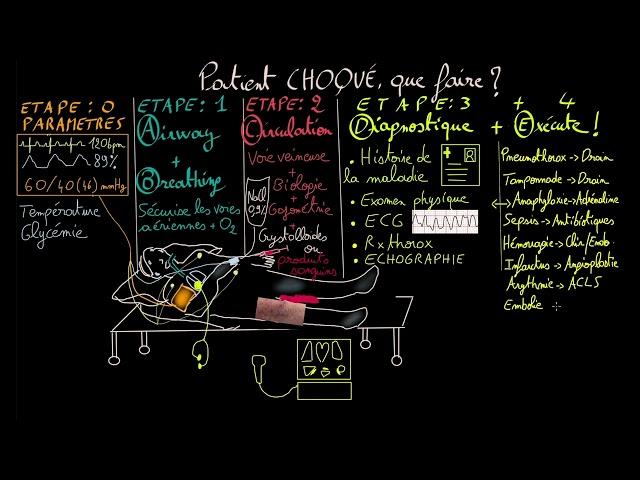 Patient CHOQUÉ, que faire ?
ETAPE : 0
PARAMETRES
120 bpm
89%
60/40 (46) mmHg
Température
Glycémie
ETAPE : 1
Airway
+
Breathing
Sécurise les voies
aériennes + O2
ETAPE : 2
Circulation
Voie veineuse
+
Biologie
+
Gazométrie
+
Crystalloïdes
ou
produits
sanguins
NaCl
0,9%
ETAPE : 3
Diagnostique
• Histoire de
la maladie
• Examen physique
• ECG
• Rx thorax
• ECHOGRAPHIE
+ 4
+ Exécute !
Pneumothorax → Drain
Tamponnade → Drain
Anaphylaxie → Adrénaline
Sepsis → Antibiotiques
Hémorragie → Chir/Endo
Infarctus → Angioplastie
Arythmie → ACLS
Embolie